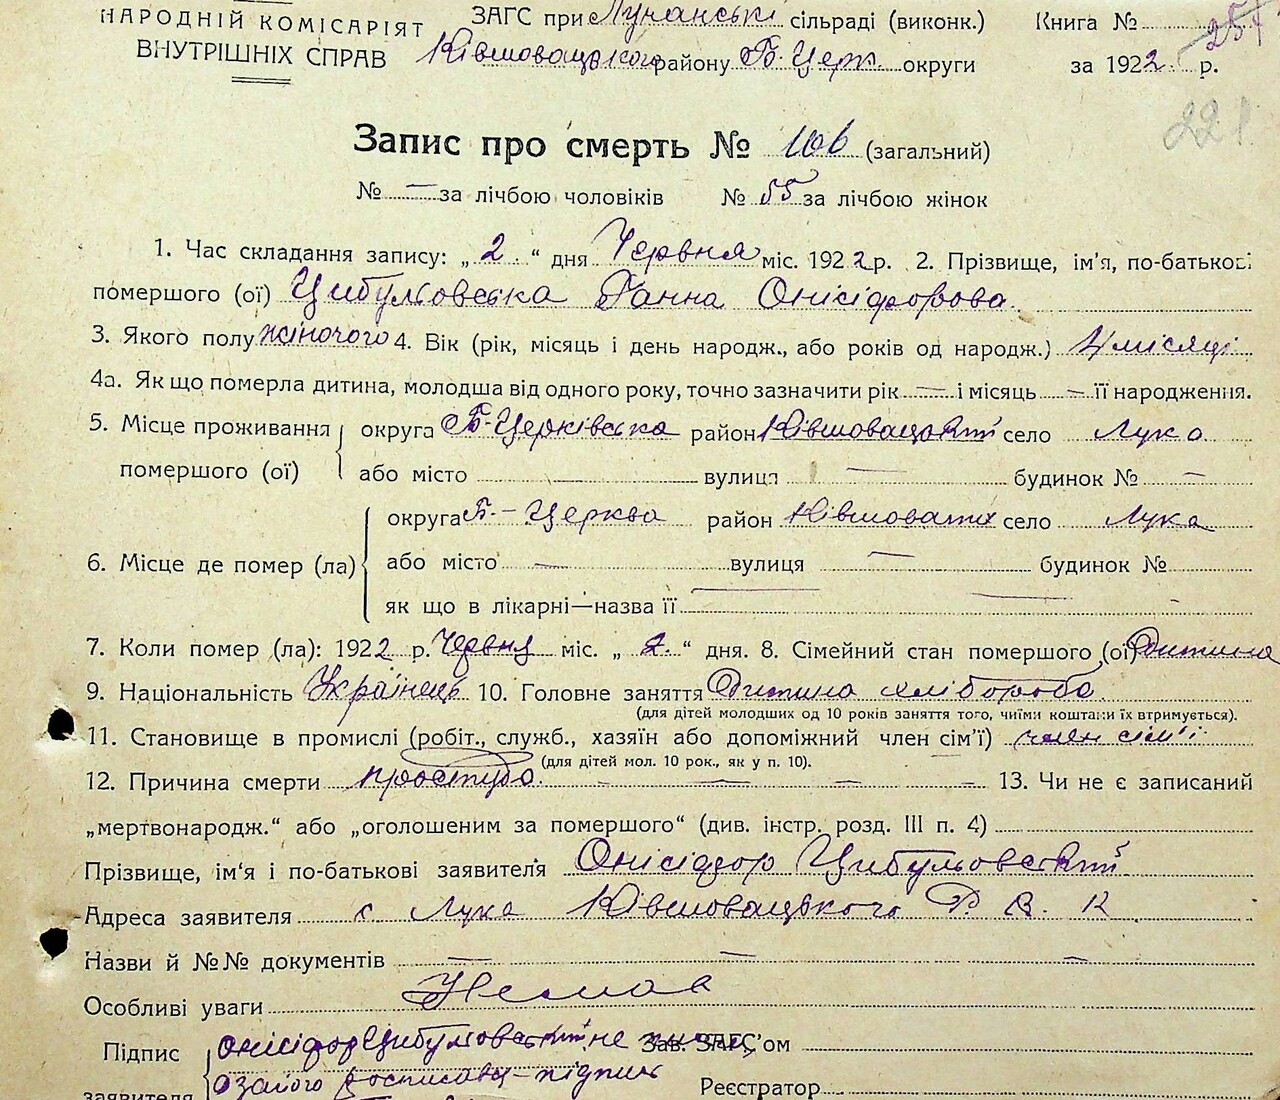 НАРОДНІЙ КОМІСАРІЯТ
ВНУТРІШНІХ СПРАВ
ЗАГС при Луканській сільраді (виконк.)
Ківшовацького району Б-Церк. округи
Книга № 257
за 1922 р.
221
Запис про смерть № 106 (загальний)
№ — за лічбою чоловіків № 55 за лічбою жінок
1. Час складання запису: „ 2 “ дня Червня міс. 1922 р. 2. Прізвище, ім'я, по-батькові
помершого (ої) Цибульовська Ганна Онісіфорова.
3. Якого полу жіночого 4. Вік (рік, місяць і день народж., або років од народж.) 4 місяці
4а. Як що померла дитина, молодша від одного року, точно зазначити рік — і місяць — її народження.
5. Місце проживання помершого (ої) округа Б-Церківська район Ківшовацький село Лука
або місто вулиця — будинок № —
6. Місце де помер (ла) округа Б.-Церква район Ківшоватск село Лука
або місто — вулиця — будинок №
як що в лікарні—назва її
7. Коли помер (ла): 1922 р. Червня міс. „ 2. “ дня. 8. Сімейний стан помершого (ої) Дитина
9. Національність Українець 10. Головне заняття Дитина хлібороба
(для дітей молодших од 10 років заняття того, чиїми коштами їх втримується).
11. Становище в промислі (робіт., служб., хазяїн або допоміжний член сім'ї) член сім'ї
(для дітей мол. 10 рок., як у п. 10).
12. Причина смерти простуда. — — — 13. Чи не є записаний
„мертвонародж.“ або „оголошеним за помершого“ (див. інстр. розд. III п. 4)
Прізвище, ім'я і по-батькові заявителя Онісіфор Цибульовський
Адреса заявителя с Лука Ківшовацького Р. В. К
Назви й №№ документів — — —
Особливі уваги Немає
Підпис заявителя Онісіфор Цибульовський не
Зав. ЗАГС'ом
а за його росписавсь—підпис
Реєстратор